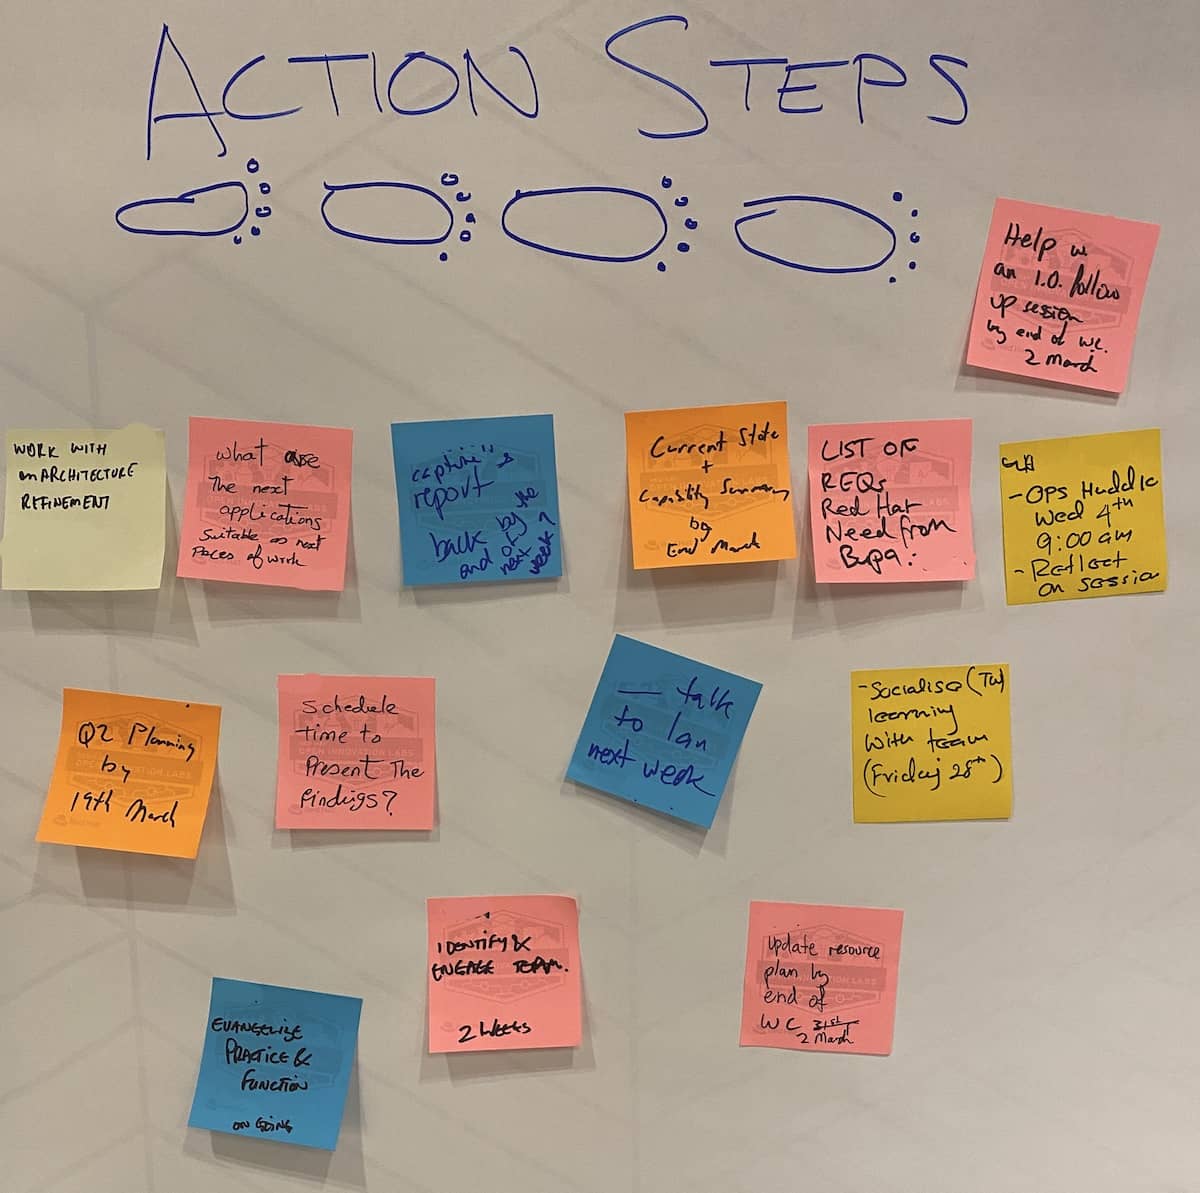 ACTION STEPS
Help w
an I.O. follow
up session
by end of W.C.
2 March
WORK WITH
ON ARCHITECTURE
REFINEMENT
what are
The next
applications
Suitable as next
Paces of work
capture
report
back by the
end of
next
week?
Current State
+
Capability Summary
by
End March
LIST OF
REQs
Red Hat
Need from
Bupa:
- OPS Huddle
Wed 4th
9:00 am
- Reflect
on session
Q2 Planning
by
19th March
Schedule
time to
Present The
findings?
— talk
to Ian
next week
- Socialise (TW)
learning
with team
(Friday 28th)
IDENTIFY &
ENGAGE TEAM.
2 WEEKS
update resource
plan by
end of
WC 31st
2 March
EVANGELIZE
PRACTICE &
FUNCTION
ON GOING
OPEN INNOVATION LABS